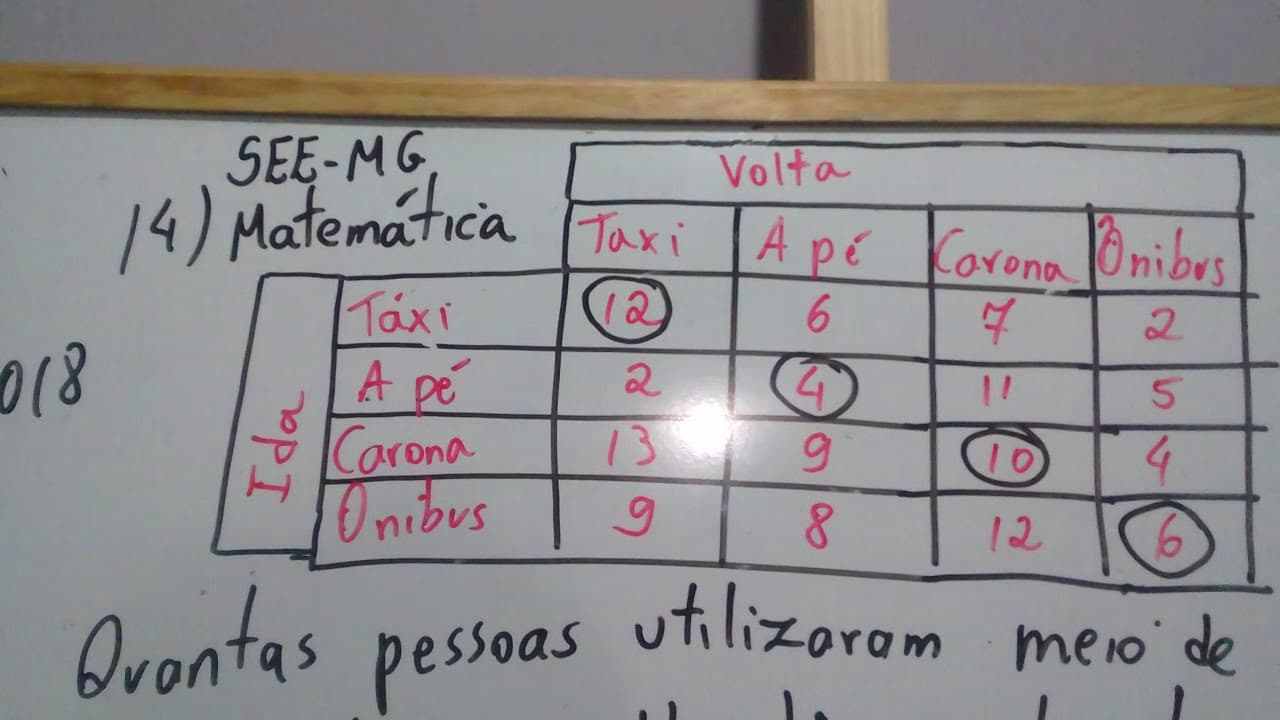 SEE-MG
14) Matemática
Volta
Taxi A pé Carona Ônibus
Táxi 12 6 7 2
018
A pé 2 4 11 5
Ida
Carona 13 9 10 4
Onibus 9 8 12 6
Quantas pessoas utilizaram meio de